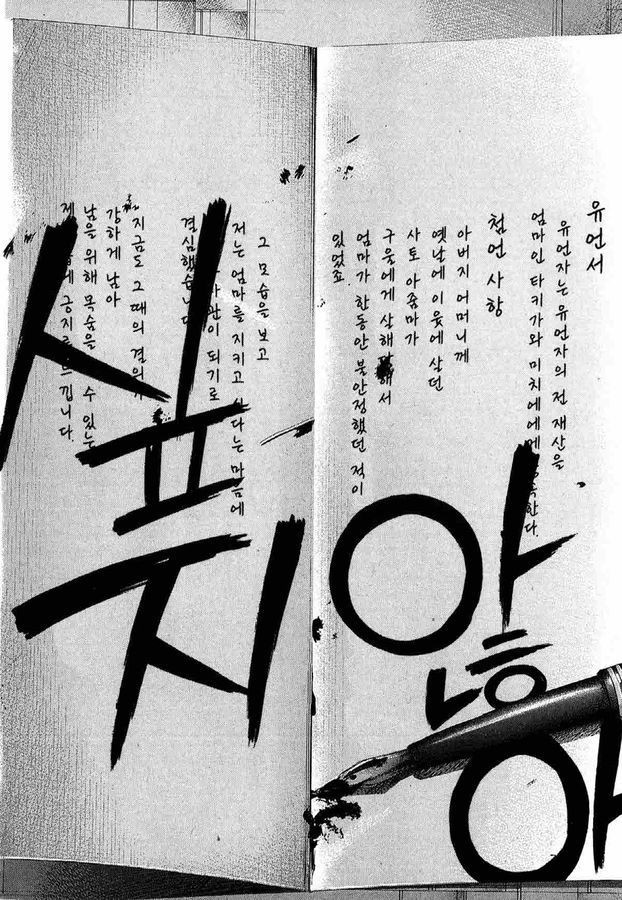 유언서
유언자는 유언자의 전 재산을
엄마인 타키가와 미치에에게
첨언 사항
아버지 어머니께
옛날에 이웃에 살던
사토 아줌마가
구울에게 살해
엄마가 한동안 불안정했던 적이
있었죠.
그 모습을 보고
저는 엄마를 지키고 싶다는 마음에
되기로
결심했습니다
지금도 그 때의 결의
강하게 남아
남을 위해 목숨을 수 있는
긍지를 느낍니다.
않아
싶지